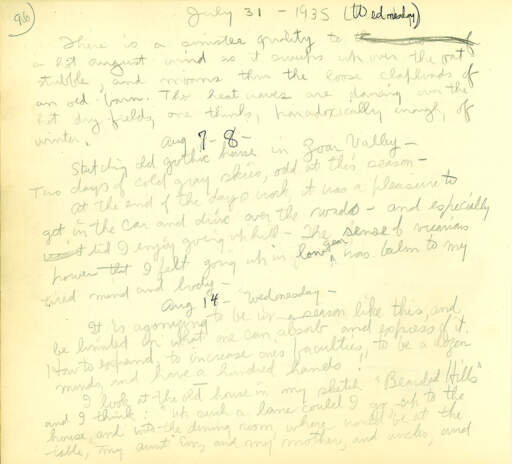 96
July 31 - 1935 (Wednesday)
There is a sinister quality to
a hot august wind as it sweeps up over the oat
stubble, and moans thru the loose clapboards of
an old barn. Tho heat waves are dancing over the
hot dry fields, one thinks, paradoxically enough, of
winter.
Aug 7-8-
Sketching old gothic house in Zoar Valley -
Two days of cold gray skies, odd at this season -
At the end of the day's work it was a pleasure to
get in the car and drive over the roads - and especially
did I enjoy going up hill - The sense of vicarious
power I felt going up in low gear was balm to my
tired mind and body -
Aug 14 - Wednesday -
It is agonizing to be in a season like this, and
be limited in what one can absorb and express of it.
How to expand, to increase ones faculties, to be a dozen
minds, and have a hundred hands!
I look at the old house in my sketch "Bearded Hills"
and I think: "Up such a lane could I go - up to the
house, and into the dining room, where would be at the
table, my aunt and my mother, and uncles, and